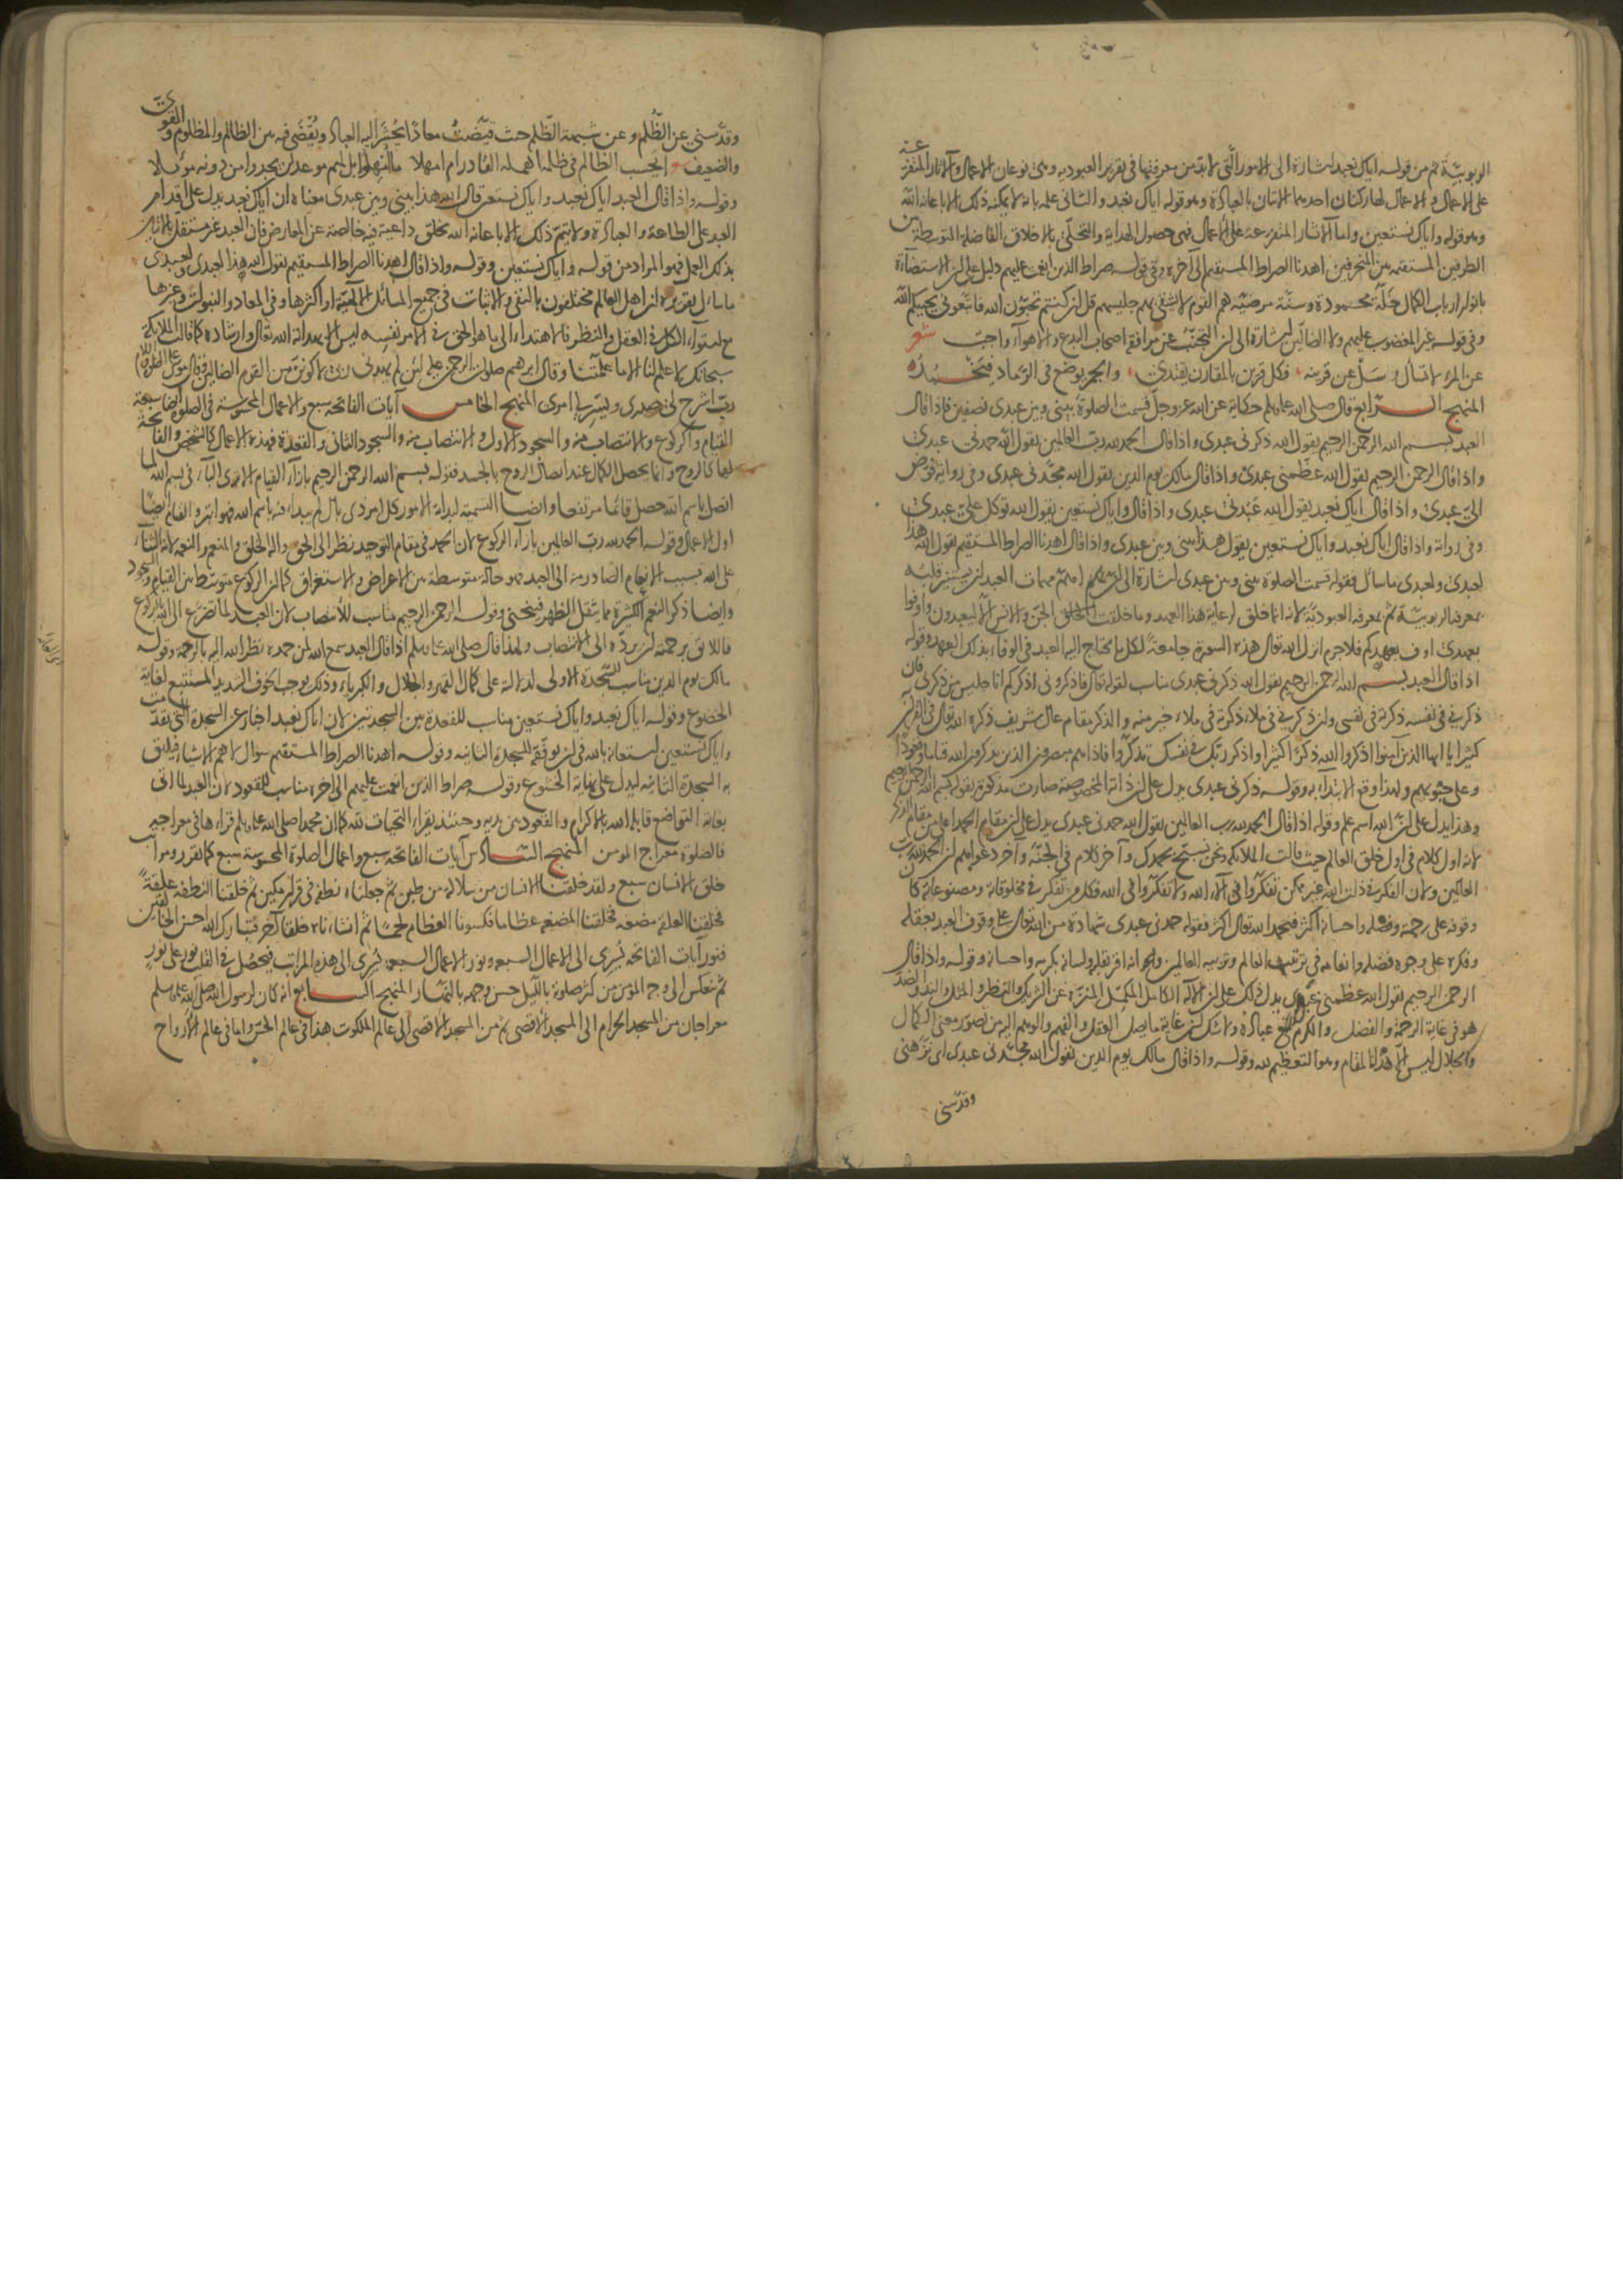 الربوبيّة ثم من قوله اياك نعبد اشارة الى الامور التى لابد من معرفتها فى تقرير العبوديه وهى نوعان الاعمال والآثار المتفرعة
على الاعمال والاعمال لها ركنان احدهما الاتيان بالعبادة وهو قوله اياك نعبد والثانى علمه بانه لا يمكنه ذلك الا باعانة الله
وهو قوله واياك نستعين واما الآثار المتفرعة على الاعمال فهى حصول الهداية والتحلّى بالاخلاق الفاضلة المتوسطة بين
الطرفين المستقيمه بين المنحرفين اهدنا الصراط المستقيم الى آخره وفى قوله صراط الذين انعمت عليهم دليل على ان الاستضآءة
بانوار ارباب الكمال خلّة محمودة وسنّة مرضيّه هم القوم لا يشقى بهم جليسهم قل ان كنتم تحبّون الله فاتبعونى يحببكم الله
وفى قوله غير المغضوب عليهم ولا الضالّين اشارة الى ان التجنّب عن مرافقة اصحاب البدع والاهوآء واجب شعر
عن المرء لا تسأل وسل عن قرينه فكل قرين بالمقارن يقتدى والجمر يوضع فى الرماد فيخمد
المنهج الرّابع قال صلى الله عليه وسلم حكاية عن الله عز وجل قسمت الصلوة بينى وبين عبدى نصفين فاذا قال
العبد بسم الله الرحمن الرحيم يقول الله ذكرنى عبدى واذا قال الحمد لله رب العالمين يقول الله حمدنى عبدى
واذا قال الرحمن الرحيم يقول الله عظمنى عبدى واذا قال مالك يوم الدين يقول الله مجّدنى عبدى وفى رواية فوّض
الىّ عبدى واذا قال اياك نعبد يقول الله عبدنى عبدى واذا قال واياك نستعين يقول الله توكل علىّ عبدى
وفى رواية واذا قال اياك نعبد واياك نستعين يقول هذا بينى وبين عبدى واذا قال اهدنا الصراط المستقيم يقول الله هذا
لعبدى ولعبدى ما سأل فقوله قسمت الصلوة بينى وبين عبدى اشارة الى ان اهم مهمات العبد ان يستنير قلبه
بمعرفة الربوبيّة ثم بمعرفة العبوديّة لانه انما خلق لرعاية هذا العهد وما خلقت الجن والانس الا ليعبدون واوفوا
بعهدى اوف بعهدكم فلا جرم انزل الله تعالى هذه السورة جامعة لكل ما يحتاج اليه العبد فى الوفاء بذلك العهد وقوله
اذا قال العبد بسم الله الرحمن الرحيم يقول الله ذكرنى عبدى مناسب لقوله تعالى فاذكرونى اذكركم انا جليس من ذكرنى فان
ذكرنى فى نفسه ذكرته فى نفسى وان ذكرنى فى ملاء ذكرته فى ملاء خير منه والذكر مقام عال شريف ذكره الله تعالى فى القرآن
كثيرا يا ايها الذين آمنوا اذكروا الله ذكرا كثيرا واذكر ربك فى نفسك تذكروا فاذا هم مبصرون الذين يذكرون الله قياما وقعودا
وعلى جنوبهم ولهذا وقع الابتداء به وقوله ذكرنى عبدى يدل على ان ذاته المخصوصة صارت مذكورة بقوله بسم الله الرحمن الرحيم
وهذا يدل على ان الله اسم علم وقوله اذا قال الحمد لله رب العالمين يقول الله حمدنى عبدى يدل على ان مقام الحمد اعلى من مقام الذكر
لانه اول كلام فى اول خلق العالم حيث قالت الملائكة ونحن نسبح بحمدك وآخر كلام فى الجنّة وآخر دعواهم ان الحمد لله رب
العالمين ولان الفكر فى ذات الله غير ممكن تفكروا فى آلاء الله ولا تتفكروا فى الله فكل من تفكر فى مخلوقاته ومصنوعاته كان
وقوفه على رحمته وفضله واحسانه اكثر فيحمد الله تعالى اكثر فقوله حمدنى عبدى شهادة من الله تعالى على وقوف العبد بعقله
وفكره على وجوه فضله وانعامه فى ترتيب العالم وتربيه العالمين وانه اقر بقلبه ولسانه بكرمه واحسانه وقوله واذا قال
الرحمن الرحيم يقول الله عظمنى عبدى يدل ذلك على ان الاله الكامل المكمل المنزه عن الشريك والنظير والمثل والند والضد
هو فى غاية الرحمة والفضل والكرم مع عباده ولا شك ان غاية ما يصل العقل والفهم والوهم اليه من تصور معنى الكمال
والجلال ليس الا هذا المقام وهو التعظيم لله وقوله واذا قال مالك يوم الدين يقول الله مجّدنى عبدى اى نزّهنى
وقدّسنى
وقدّسنى عن الظُلم وعن شيمة الظلم حيث قيّضت معادا يحشر اليه العباد ويُقضى فيه بين الظالم والمظلوم والقوىّ
والضعيف ايحسب الظالم فى ظلمه اهمله القادر ام امهلا ما اهملوا بل لهم موعد لن يجدوا من دونه موئلا
وقوله واذا قال العبد اياك نعبد واياك نستعين قال الله هذا بينى وبين عبدى معناه ان اياك نعبد يدل على اقدام
العبد على الطاعة والعبادة ولا يتم ذلك الا باعانة الله بخلق داعية فيه خالصة عن المعارض فان العبد غير مستقل بالاتيان
بذلك العمل فهو المراد من قوله واياك نستعين وقوله واذا قال اهدنا الصراط المستقيم يقول الله هذا لعبدى ولعبدى
ما سأل تقريره ان اهل العالم مختلفون بالنفى والاثبات فى جميع المسائل الالهيّة او اكثرها وفى المعاد والنبوات وغيرها
مع استوآء الكل فى العقل والنظر فالاهتداء الى ما هو الحق فى الامر نفسه ليس الا بهداية الله تعالى وارشاده كما قالت الملائكة
سبحانك لا علم لنا الا ما علمتنا وقال ابرهيم صلوات الرحمن عليه لئن لم يهدنى ربى لاكونن من القوم الضالين وقال موسى
ربّ اشرح لى صدرى ويسّر لى امرى المنهج الخامس آيات الفاتحة سبع والاعمال المحسوسة فى الصلوة ايضا سبعة
القيام والركوع والانتصاب منه والسجود الاول والانتصاب منه والسجود الثانى والقعدة فهذه الاعمال كالشخص والفاتحة
لها كالروح وانما يحصل الكمال عند اتصال الروح بالجسد فقوله بسم الله الرحمن الرحيم بازآء القيام الا ترى ان الباء فى بسم الله لما
اتصل باسم الله حصل قائما مرتفعا وايضا التسمية لبداية الامور كل امر ذى بال لم يبداء فيه باسم الله فهو ابتر والقيام ايضا
اول الاعمال وقوله الحمد لله رب العالمين بازآء الركوع لان الحمد فى مقام التوحيد نظر الى الحق والى الخلق والمنعم والنعمة لانه الثناء
على الله بسبب الانعام الصادر منه الى العبد فهو حالة متوسطة بين الاعراض والاستغراق كما ان الركوع متوسط بين القيام والسجود
وايضا ذكر النعم الكثيرة مما يثقل الظهر فينحنى وقوله الرحمن الرحيم مناسب للانتصاب لان العبد لما تضرع الى الله بالركوع
فاللائق برحمته ان يردّه الى الانتصاب ولهذا قال صلى الله عليه وسلم اذا قال العبد سمع الله لمن حمده نظر الله اليه بالرحمة وقوله
مالك يوم الدين مناسب للسّجدة الاولى لدلالته على كمال القهر والجلال والكبرياء وذلك يوجب الخوف الشديد المستتبع لغاية
الخضوع وقوله اياك نعبد واياك نستعين مناسب للقعدة بين السجدتين لان اياك نعبد اخبار عن السجدة التى تقدمت
واياك نستعين استعانة بالله فى ان يوفّقه للسجدة الثانيه وقوله اهدنا الصراط المستقيم سوال لاهم الاشياء فيليق
به السجدة الثانية ليدل على نهاية الخشوع وقوله صراط الذين انعمت عليهم الى اخره مناسب للقعود لان العبد لما اتى
بغاية التواضع قابله الله بالاكرام والقعود بين يديه وحينئذ يقراء التحيات لله كما ان محمدا صلى الله عليه وسلم قراءها فى معراجه
فالصلوة معراج المومن المنهج السّادس آيات الفاتحة سبع واعمال الصلوة المحسوسة سبع كما تقرر ومراتب
خلق الانسان سبع ولقد خلقنا الانسان من سلالة من طين ثم جعلناه نطفة فى قرار مكين ثم خلقنا النطفة علقةً
فخلقنا العلقة مضغه فخلقنا المضغه عظاما فكسونا العظام لحمًا ثم انشاءناه خلقا آخر فتبارك الله احسن الخالقين
فنور آيات الفاتحة يسرى الى الاعمال السبعة ونور الاعمال السبعة يسرى الى هذه المراتب فيحصل فى القلب نور على نور
ثم ينعكس الى وجه المومن من كثر صلوته بالليل حسن وجهه بالنّهار المنهج السّابع انه كان لرسول الله صلى الله عليه وسلم
معراجان من المسجد الحرام الى المسجد الاقصى ثم من المسجد الاقصى الى عالم الملكوت هذا فى عالم الحس واما فى عالم الارواح